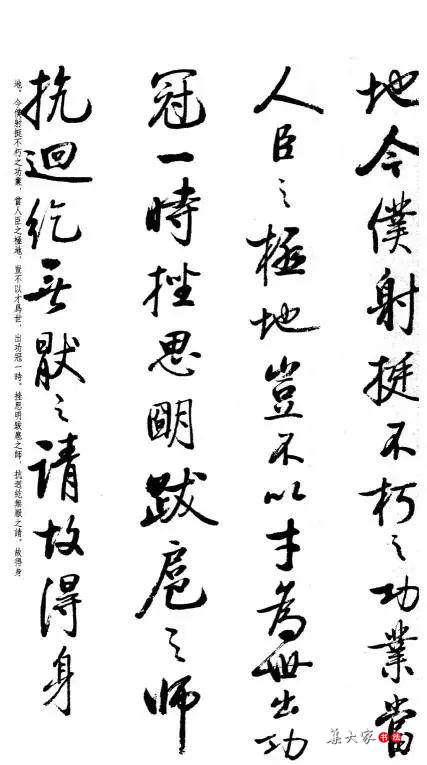 地今僕射挺不朽之功業當
人臣之極地豈不以才為世出功
冠一時挫思明跋扈之師
抗迴紇無猒之請故得身
地，今僕射挺不朽之功業，當人臣之極地，豈不以才為世，出功冠一時。挫思明跋扈之師，抗迴紇無厭之請。故得身
集大家書法